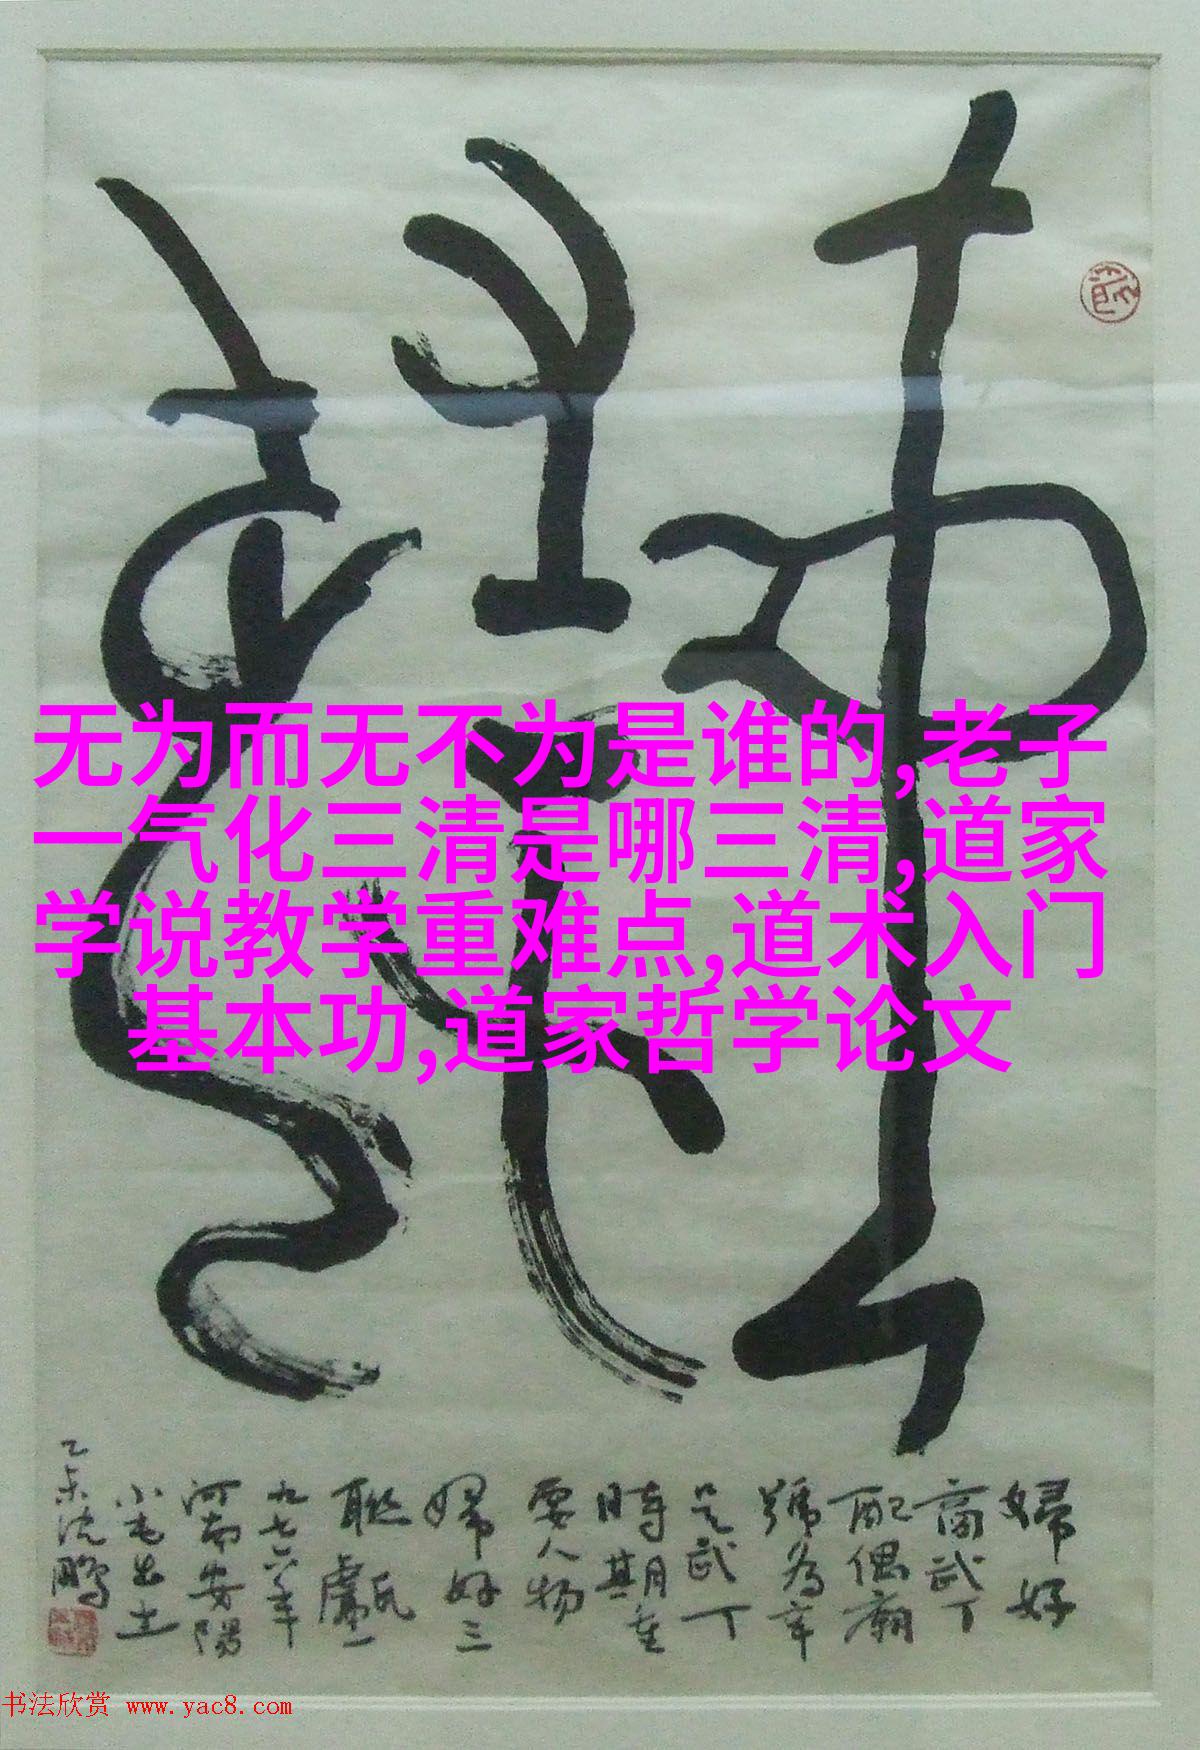 无为而无不为是谁的,老子
一气化三清是哪三清,道家
学说教学重难点,道术入门
基本功,道家哲学论文
婦好
商武丁
配偶廟
號为辛
是武丁
時期重
要人物
婦好三
聯甗
九七六年
河南安陽
小屯出土
乙未沈鹏
书法欣赏 www.yac8.com